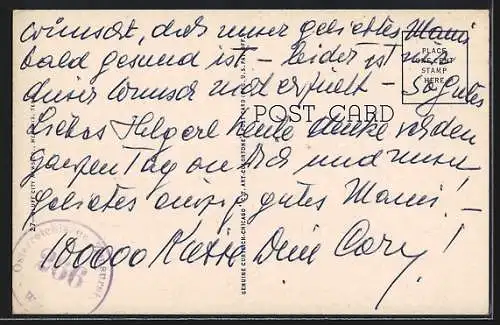 wünscht, dass unser geliebtes Mami
bald gesund ist - leider ist
dieser Wunsch nicht erfüllt - so gutes
Liebes Helgerl heute denke ich den
ganzen Tag an Dich und unser
geliebtes einzig gutes Mami -!
100000 Küsse Dein Cary!
POST CARD
PLACE
ONE CENT
STAMP
HERE
GENUINE CURTEICH-CHICAGO "C.T. ART-COLORTONE" POST CARD
956